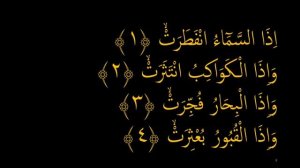 إِذَا السَّمَاءُ انْفَطَرَتْ ﴿١﴾
وَإِذَا الْكَوَاكِبُ انْتَثَرَتْ ﴿٢﴾
وَإِذَا الْبِحَارُ فُجِّرَتْ ﴿٣﴾
وَإِذَا الْقُبُورُ بُعْثِرَتْ ﴿٤﴾